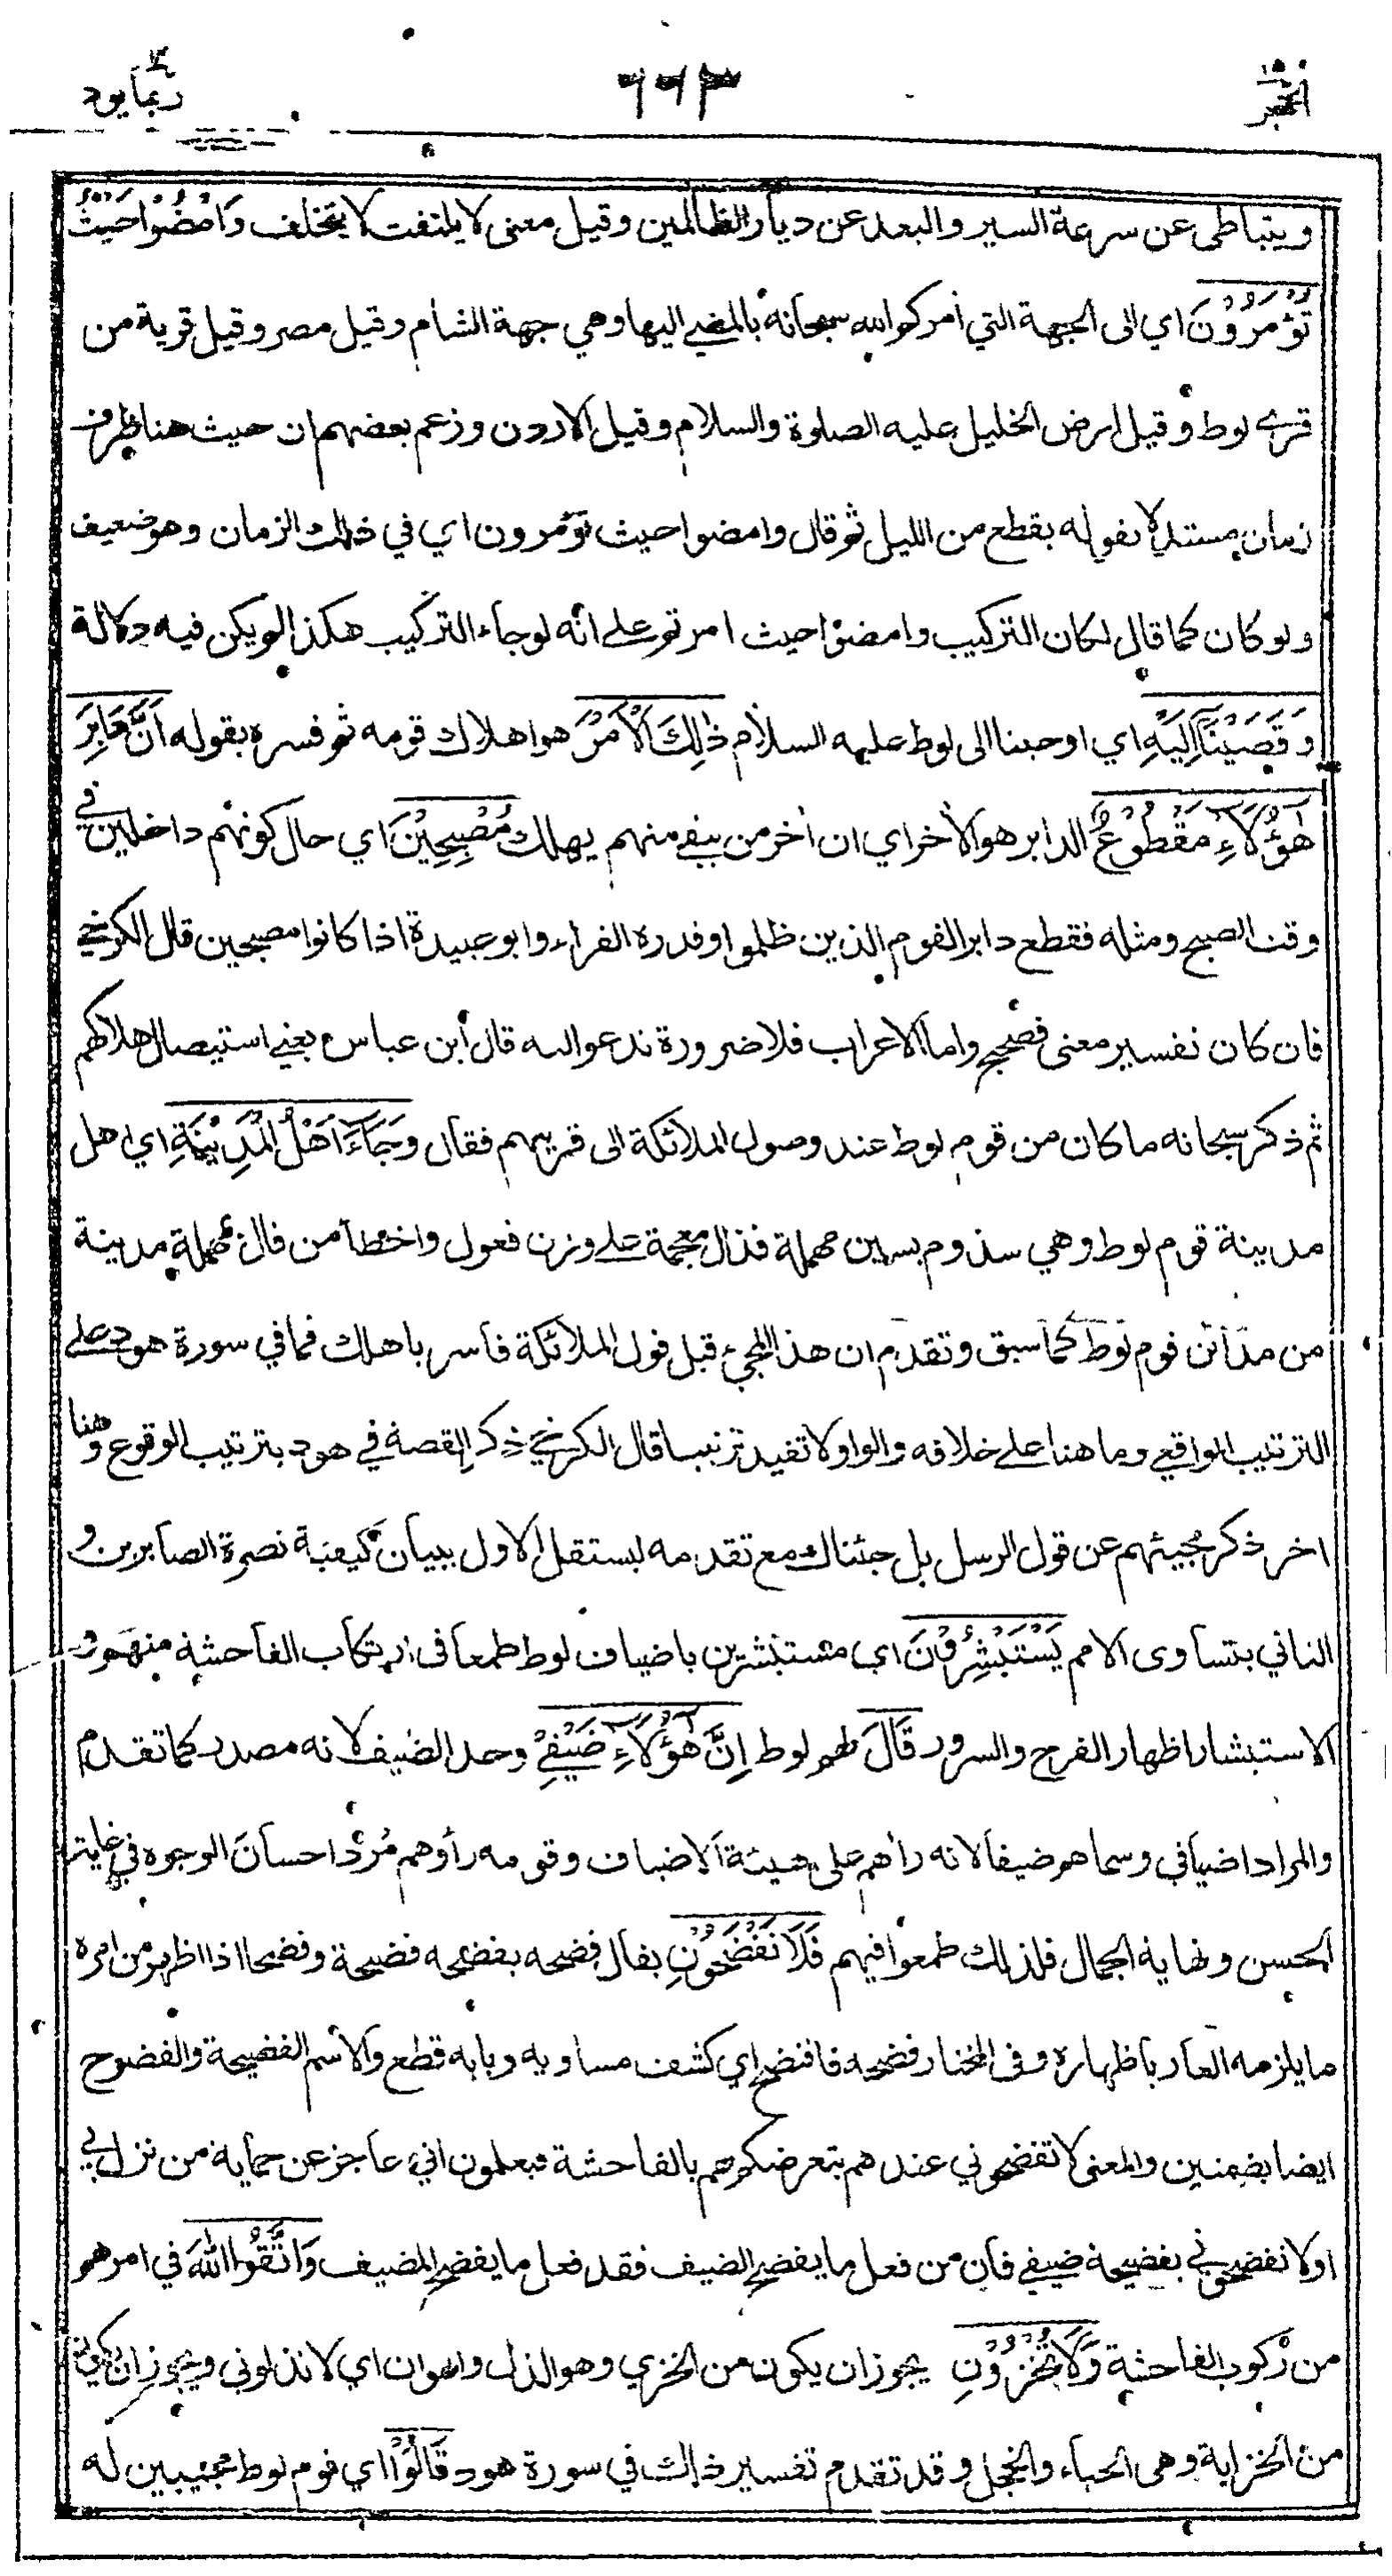 الحجر ١٥
٦٦٣
ربما يود ١٤
ويتباطى عن سرعة السير والبعد عن ديار الظالمين وقيل معنى لا يلتفت لا يتخلف وَامْضُوْا حَيْثُ
تُؤْمَرُوْنَ اي الى الجهة التي امركم الله سبحانه بالمضي اليها وهي جهة الشام وقيل مصر وقيل قرية من
قرى لوط وقيل ارض الخليل عليه الصلوة والسلام وقيل الاردن وزعم بعضهم ان حيث هنا ظرف
زمان مستدلا بقوله بقطع من الليل ثم قال وامضوا حيث تؤمرون اي في ذلك الزمان وهو ضعيف
ولو كان كما قال لكان التركيب وامضوا حيث امرتم على انه لو جاء التركيب هكذا لم يكن فيه دلالة
وَقَضَيْنَآ اِلَيْهِ اي اوحينا الى لوط عليه السلام ذٰلِكَ الْاَمْرَ هو اهلاك قومه ثم فسره بقوله اَنَّ دَابِرَ
هٰٓؤُلَآءِ مَقْطُوْعٌ الدابر هو الأخر اي ان أخر من يبقى منهم يهلك مُصْبِحِيْنَ اي حال كونهم داخلين في
وقت الصبح ومثله فقطع دابر القوم الذين ظلموا وقدره الفراء وابو عبيدة اذا كانوا مصبحين قال الكرخي
فان كان تفسير معنى فصحيح واما الاعراب فلا ضرورة تدعو اليه قال ابن عباس يعني استيصال هلاكهم
ثم ذكر سبحانه ما كان من قوم لوط عند وصول الملائكة الى قريتهم فقال وَجَآءَ اَهْلُ الْمَدِيْنَةِ اي اهل
مدينة قوم لوط وهي سذوم بسين مهملة فذال معجمة على وزن فعول واخطأ من قال مهملة مدينة
من مدائن قوم لوط كما سبق وتقدم ان هذا المجيء قبل قول الملائكة فاسر باهلك فما في سورة هود على
الترتيب الواقعي وما هنا على خلافه والواو لا تفيد ترتيبا قال الكرخي ذكر القصة في هود بترتيب الوقوع وهنا
اخر ذكر مجيئهم عن قول الرسل بل جئناك مع تقدمه ليستقل الاول ببيان كيفية نصرة الصابرين و
الثاني بتساوى الامم يَسْتَبْشِرُوْنَ اي مستبشرين باضياف لوط طمعا في ارتكاب الفاحشة منهم و
الاستبشار اظهار الفرح والسرور قَالَ لهم لوط اِنَّ هٰٓؤُلَآءِ ضَيْفِيْ وحد الضيف لانه مصدر كما تقدم
والمراد اضيافي وسماهم ضيفا لانه رأهم على هيئة الاضياف وقومه رأوهم مُرْدًا حسان الوجوه في غاية
الحسن ونهاية الجمال فلذلك طمعوا فيهم فَلَا تَفْضَحُوْنِ يقال فضحه يفضحه فضيحة وفضحا اذا اظهر من امره
ما يلزمه العار باظهاره وفي المختار فضحه فافتضح اي كشف مساويه وبابه قطع والاسم الفضيحة والفضوح
ايضا بضمتين والمعنى لا تفضحوني عندهم بتعرضكم لهم بالفاحشة فيعلمون اني عاجز عن حماية من نزل بي
اولا تفضحوني بفضيحة ضيفي فان من فعل ما يفضح الضيف فقد فعل ما يفضح المضيف وَاتَّقُوا اللّٰهَ في امرهم
من ركوب الفاحشة وَلَا تُخْزُوْنِ يجوز ان يكون من الخزي وهو الذل والهوان اي لا تذلوني ويجوز ان يكون
من الخزاية وهي الحياء والخجل وقد تقدم تفسير ذلك في سورة هود قَالُوْٓا اي قوم لوط مجيبين له